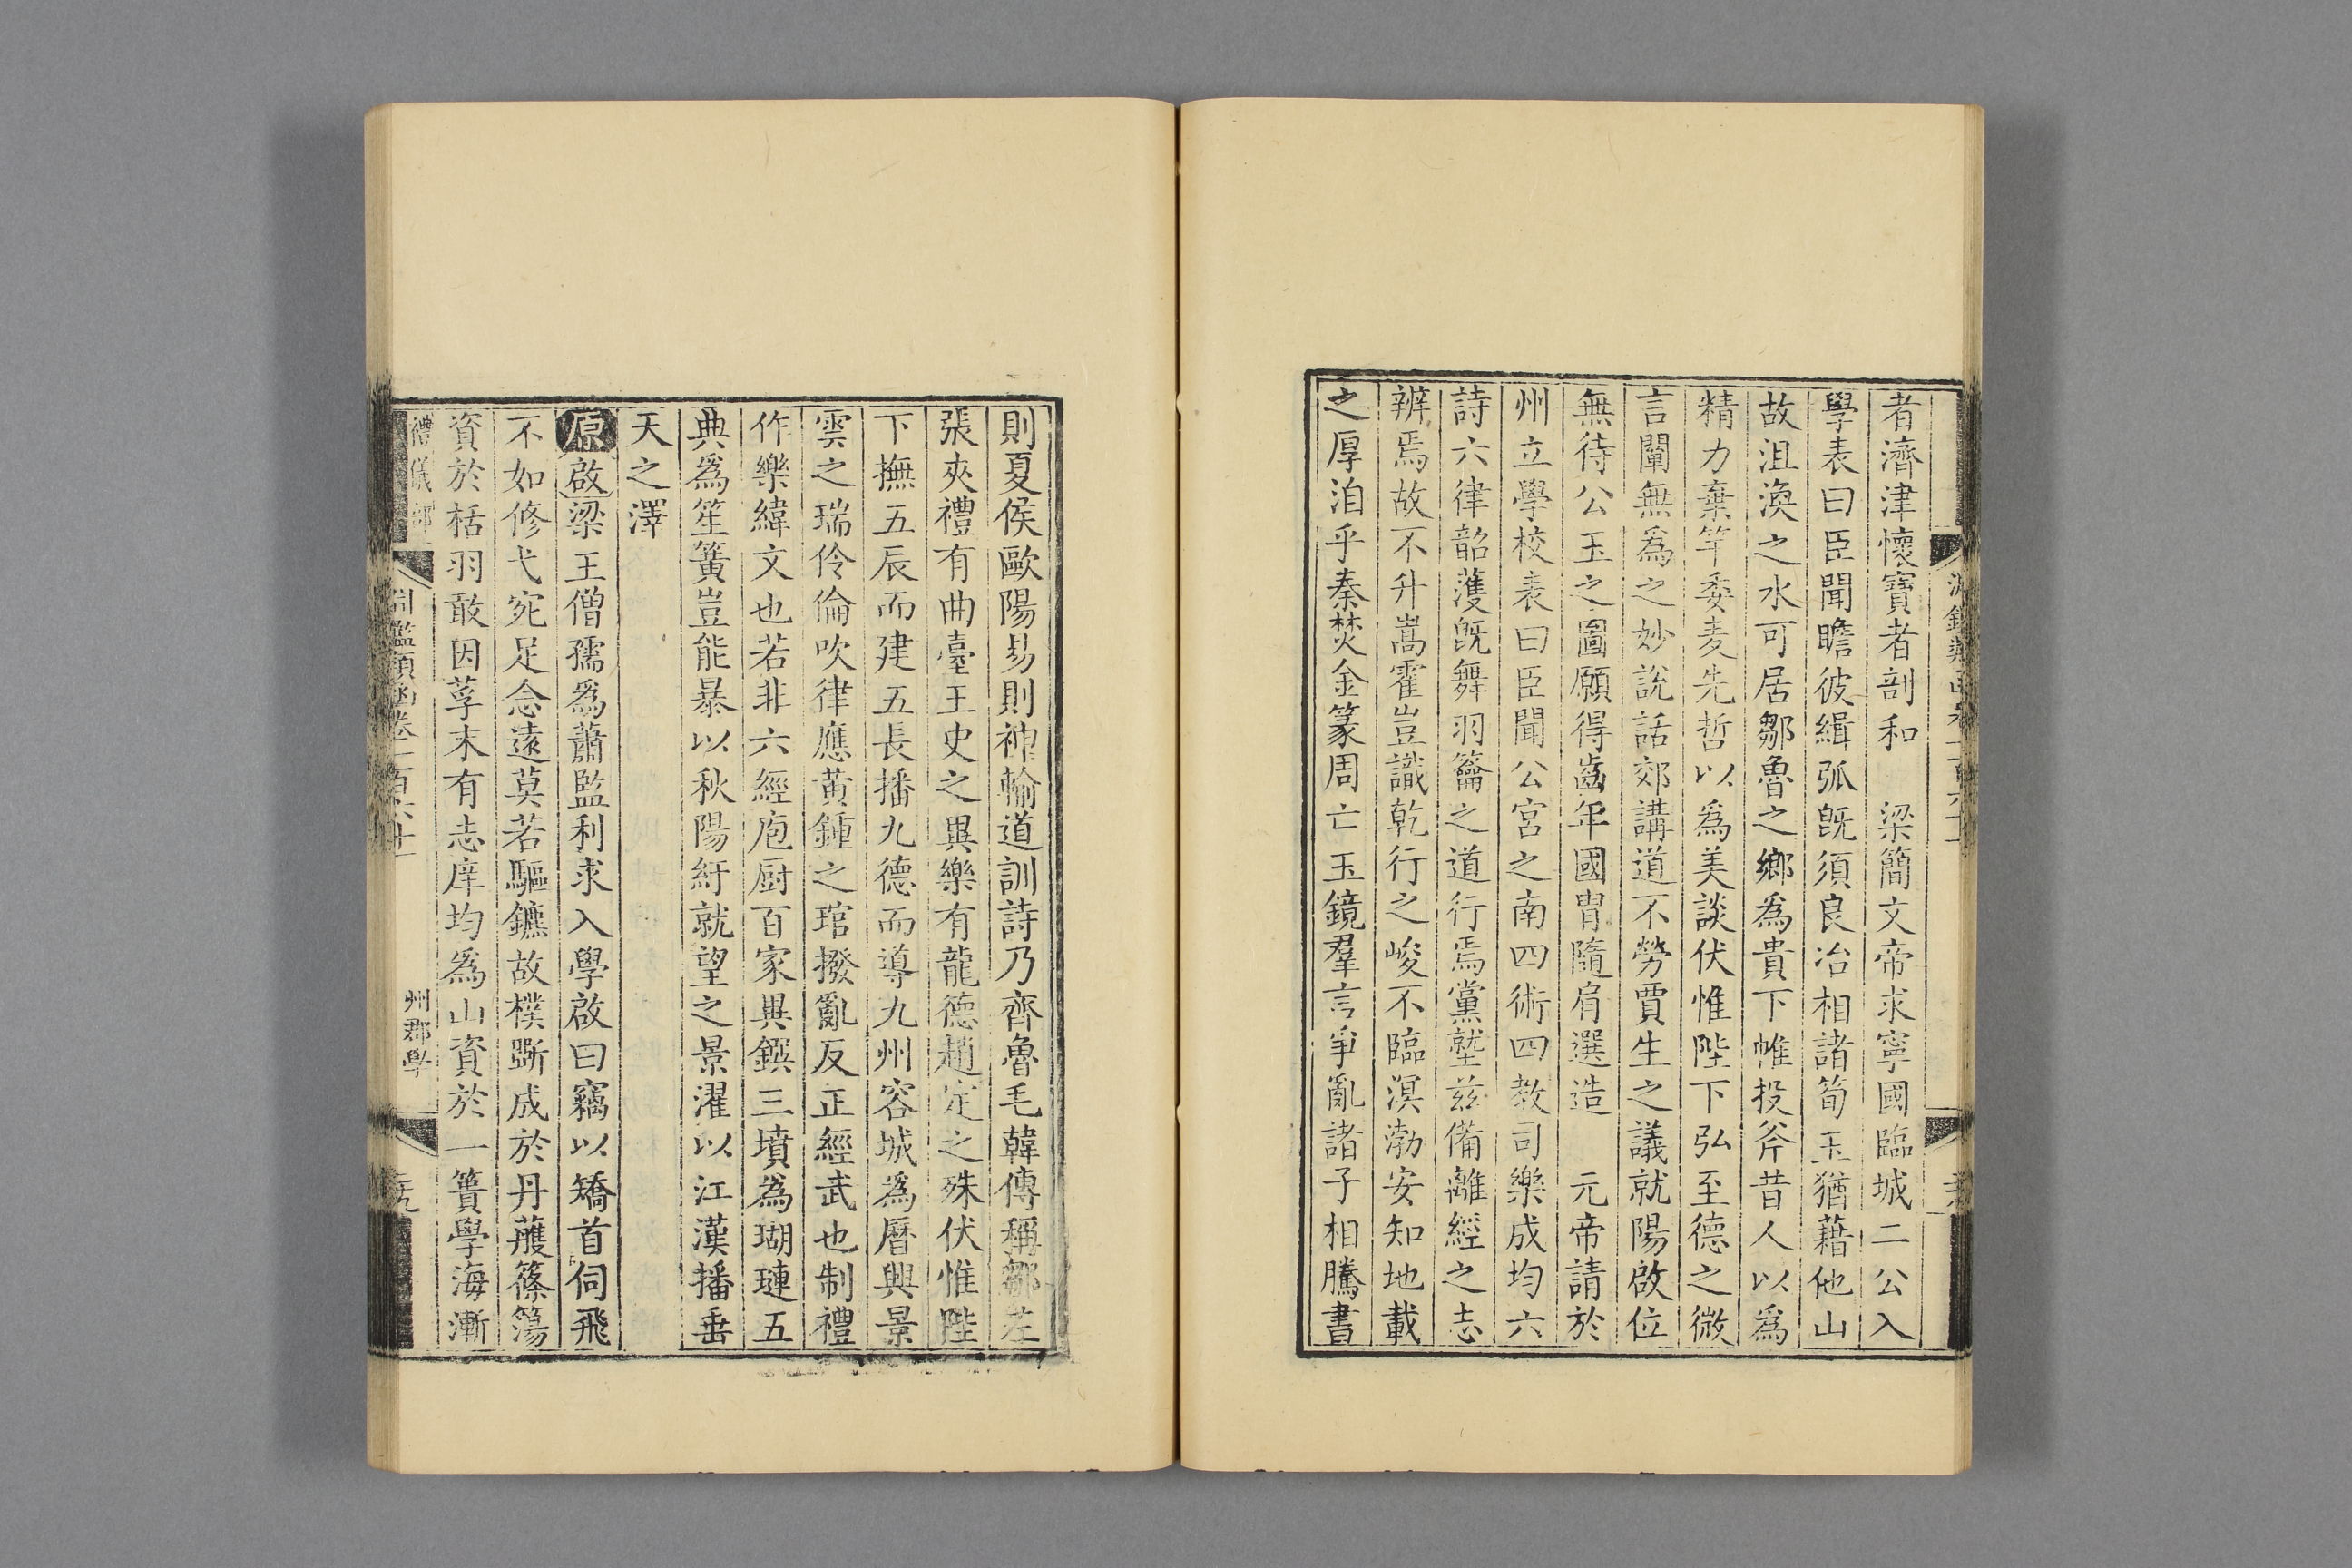 者濟津懷寶者剖和　梁簡文帝求寧國臨城二公入
學表曰臣聞瞻彼緝弧旣須良冶相諸筍玉猶藉他山
故沮渙之水可居鄒魯之鄉爲貴下帷投斧昔人以爲
精力棄竿委麦先哲以爲美談伏惟陛下弘至德之微
言闡無爲之妙說話郊講道不勞賈生之議就陽啟位
無待公玉之圖願得齒年國胄隨肩選造　元帝請於
州立學校表曰臣聞公宮之南四術四教司樂成均六
詩六律韶濩旣舞羽籥之道行焉黨塾茲備離經之志
辨焉故不升嵩霍豈識乾行之峻不臨溟渤安知地載
之厚洎乎秦焚金篆周亡玉鏡羣言爭亂諸子相騰書
則夏侯歐陽易則神輸道訓詩乃齊魯毛韓傳稱鄒左
張夾禮有曲臺王史之異樂有龍德趙定之殊伏惟陛
下撫五辰而建五長播九德而導九州容城爲曆興景
雲之瑞伶倫吹律應黃鍾之琯撥亂反正經武也制禮
作樂緯文也若非六經庖厨百家異饌三墳爲瑚璉五
典爲笙簧豈能暴以秋陽紆就望之景濯以江漢播垂
天之澤
原啟梁王僧孺爲蕭監利求入學啟曰竊以矯首伺飛
不如修弋宛足念遠莫若驅鑣故樸斲成於丹雘篠簜
資於栝羽敢因莩末有志庠均爲山資於一簣學海漸
禮儀部
州郡學